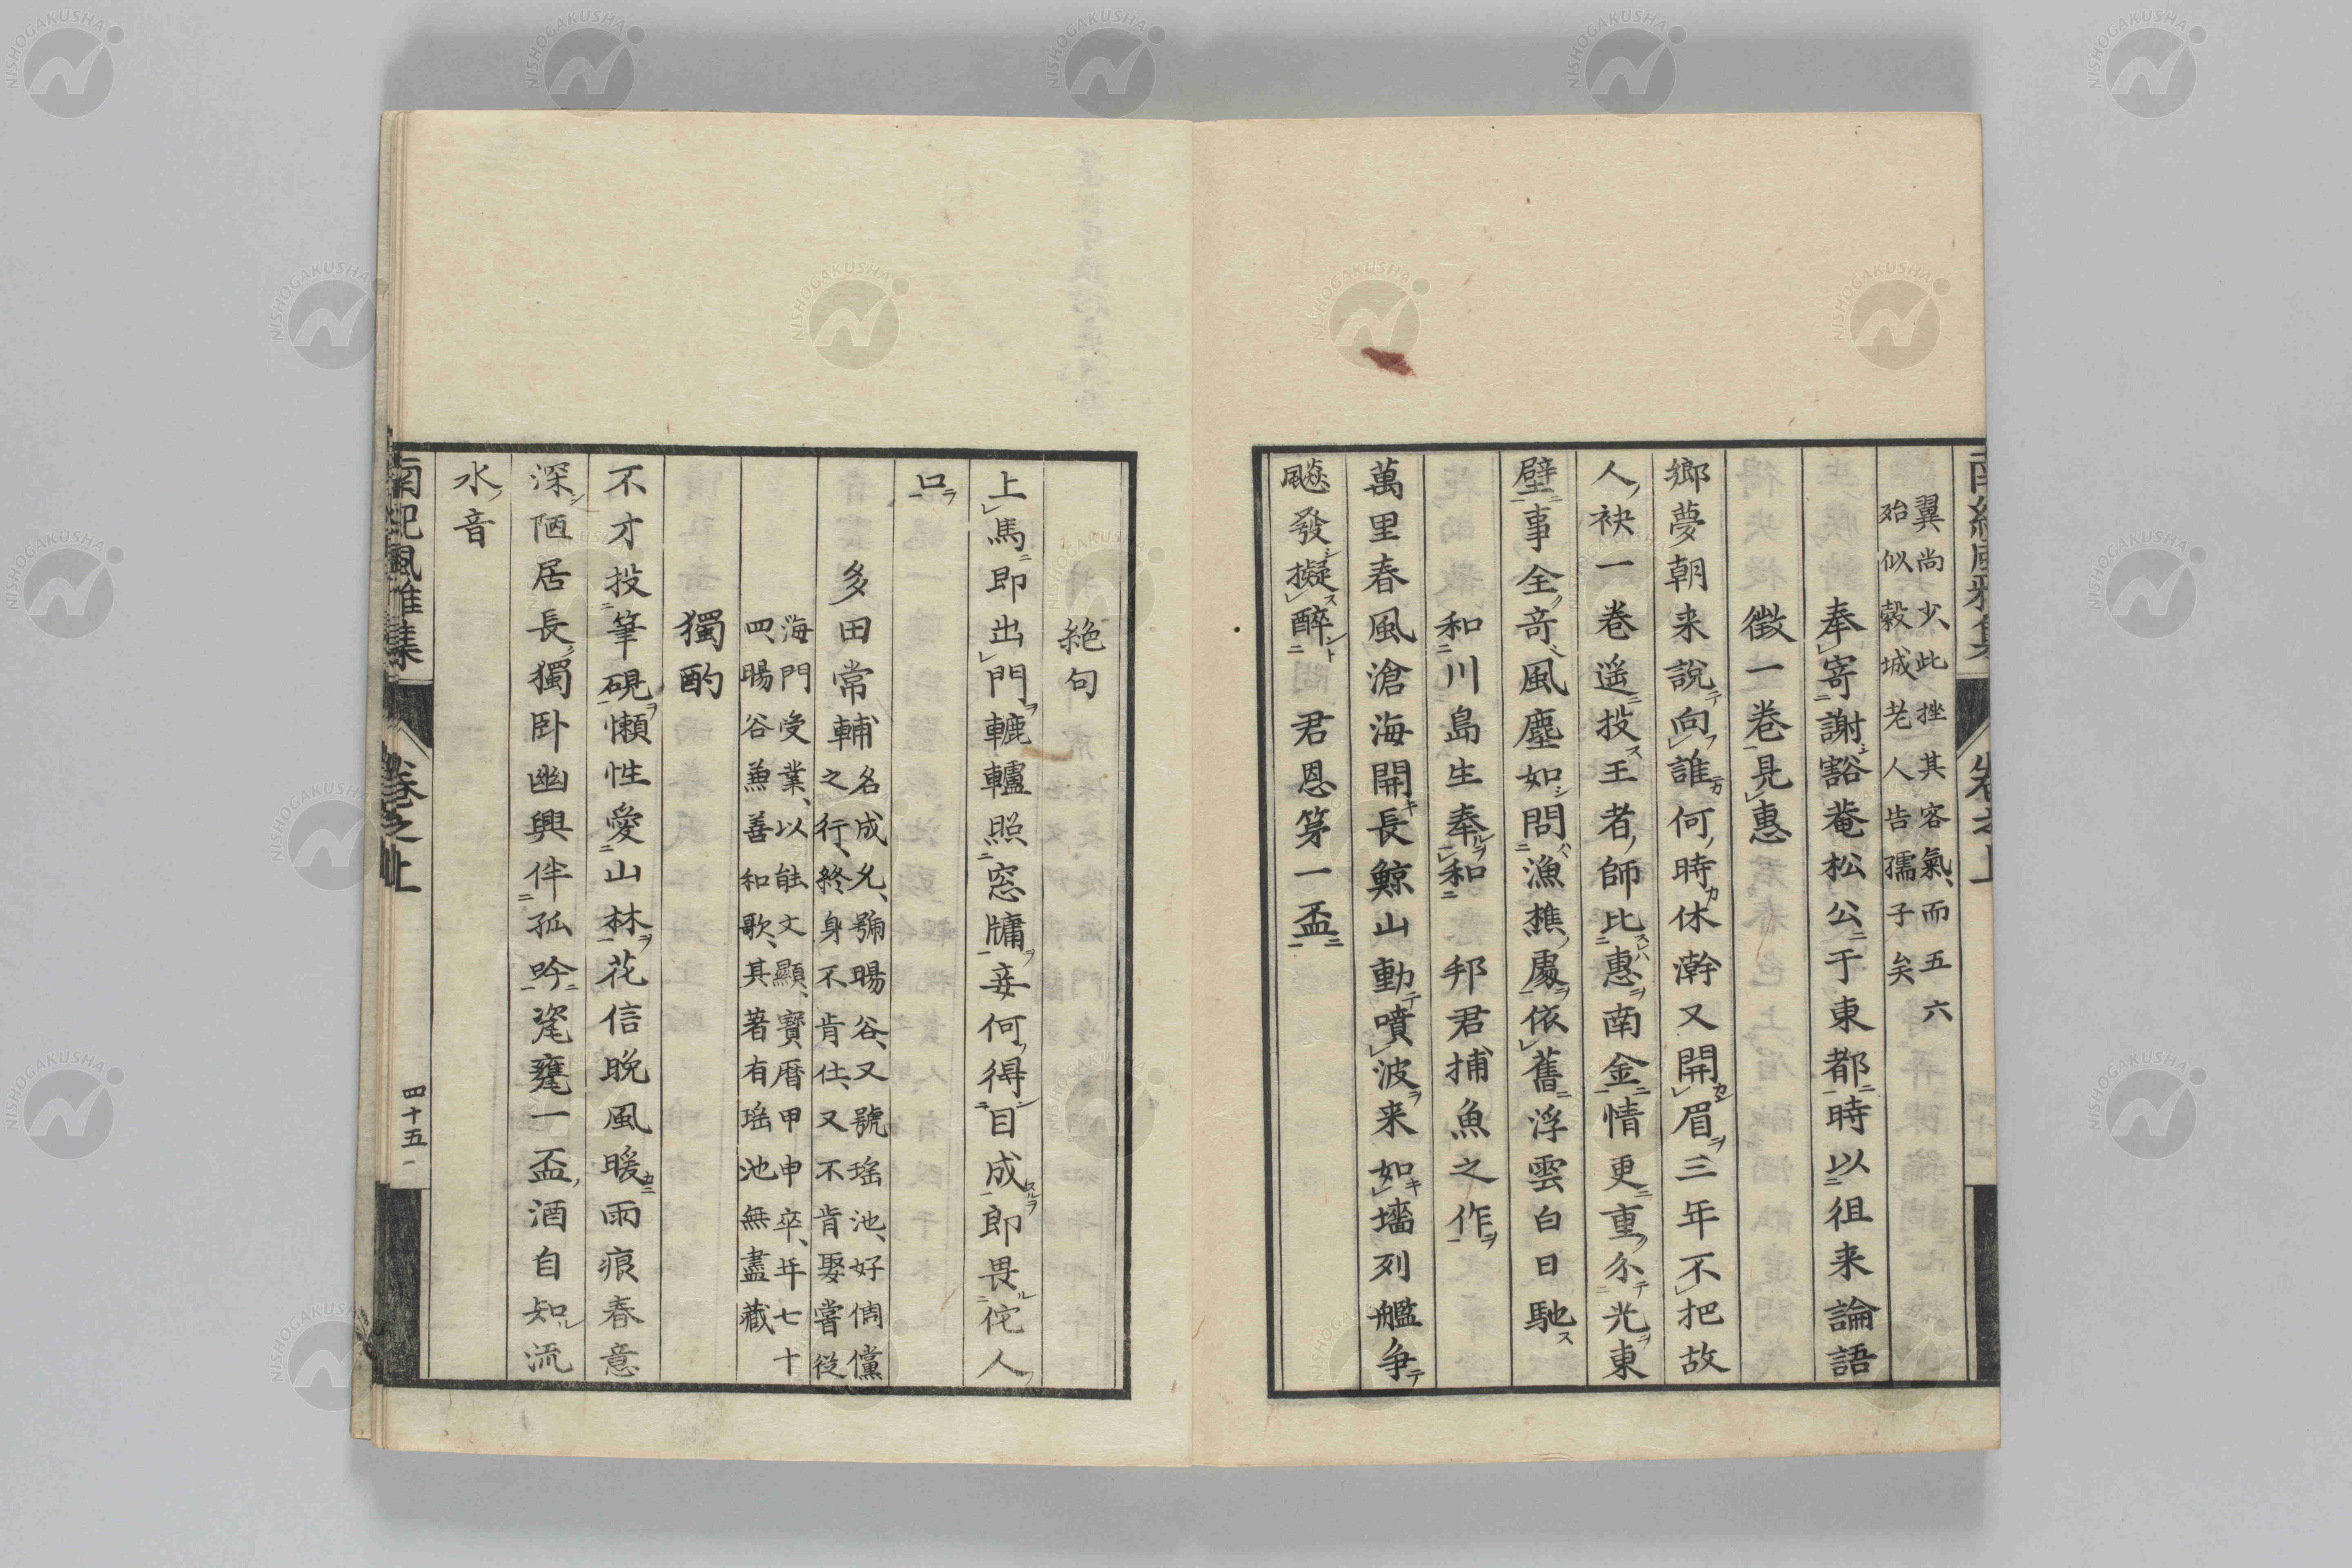 翼尚少此挫其容氣、而五六
殆似穀城老人告孺子矣
奉寄謝豁菴松公于東都時以徂来論語
徵一巻見惠
郷夢朝来説向誰何時休澣又開眉三年不把故
人袂一巻遥投王者師比惠南金情更重分光東
壁事全竒風塵如問漁樵處依舊浮雲白日馳
和川島生奉和邦君捕魚之作
萬里春風滄海開長鯨山動噴波来如墻列艦争
飈發擬醉君恩第一盃
絶句
上馬即出門轆轤照窓牗妾何得目成郎畏侘人
口
多田常輔
名成允、號暘谷、又號瑤池、好倜儻
之行、終身不肯仕、又不肯娶嘗従
海門受業、以能文顯、寳暦甲申卒、年七十
四、暘谷兼善和歌、其著有瑤池無盡蔵
獨酌
不才投筆硯懶性愛山林花信晩風暖雨痕春意
深陋居長獨卧幽興伴孤吟窊甕一盃酒自知流
水音
南紀風雅集
巻之上
四十五
NISHOGAKUSHA